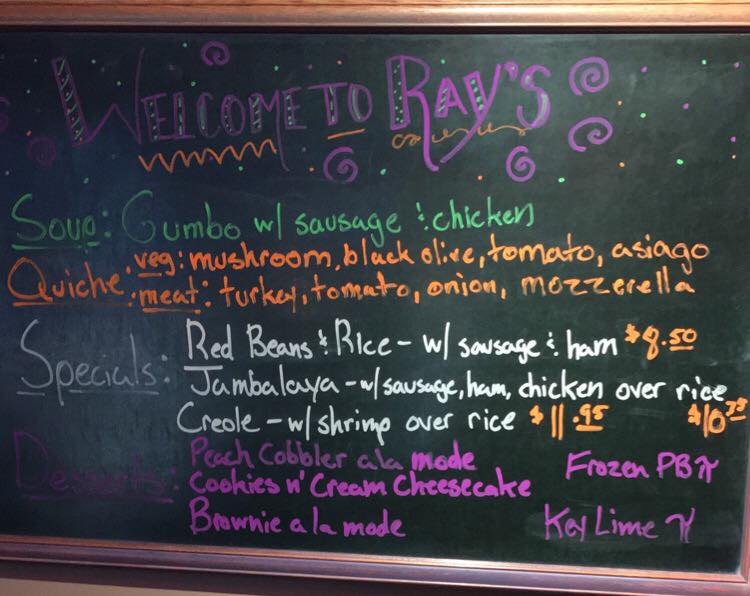 WELCOME TO RAY'S
Soup: Gumbo w/ sausage & chicken
Quiche: veg: mushroom, black olive, tomato, asiago
meat: turkey, tomato, onion, mozzerella
Specials: Red Beans & Rice - w/ sausage & ham $8.50
Jambalaya - w/ sausage, ham, chicken over rice
Creole - w/ shrimp over rice $11.95 $10.75
Desserts: Peach Cobbler a la mode Frozen PB π
Cookies n' Cream Cheesecake
Brownie a la mode Key Lime π